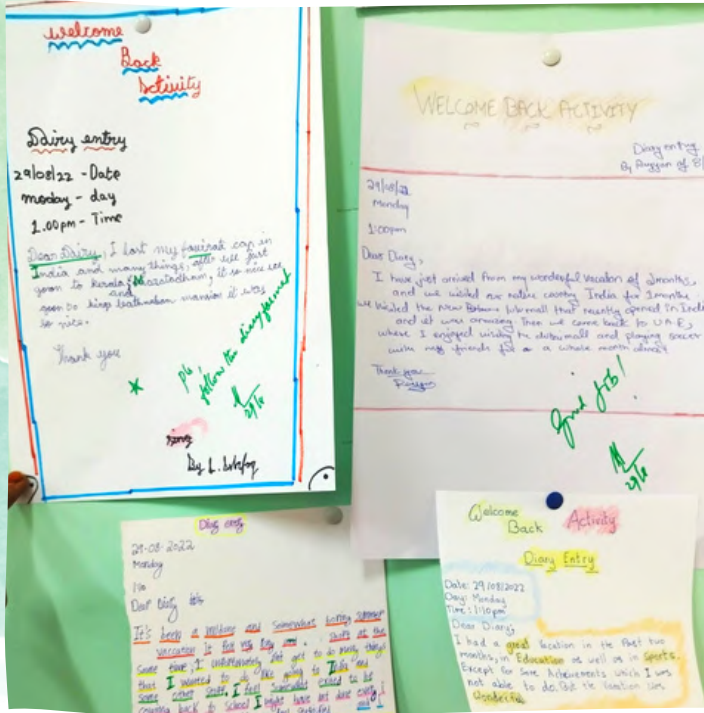 welcome
Back
Activity
Dairy entry
29/08/22 - Date
monday - day
1.00pm - Time
Dear Dairy, I lost my cap in
India and many things, after we just
goon to kerala
goon to king mansion it was
so nice.
Thank you
pls
follow the diary format
29/8
By L.
WELCOME BACK ACTIVITY
Diary entry
By of 8/
29/08/22
Monday
1:00pm
Dear Diary,
I have just arrived from my wonderful vacation of 2months,
and we visited our native country India for 1months
we visited the New lulu mall that recently opened in India
and it was amazing Then we come back to U.A.E,
where I enjoyed visiting the dubai mall and playing soccer
with my friends for a whole month almost
Thank you
Good job!
29/8
Diary entry
29-08-2022
Monday
Dear Diary
It's been a and somewhat boring summer
vaccation it for me Big and . . . at the
same time, I unfortunately did not get to do many things
that I wanted to do like going to India and
some other stuff. I feel somewhat to be
coming back to school I might have not done every
Welcome
Back Activity
Diary Entry
Date: 29/08/2022
Day: Monday
Time: 1:10pm
Dear Diary;
I had a great Vacation in the Past two
months, in Education as well as in Sports.
Except for some Achievements which I was
not able to do, But the Vacation was
Wonderful